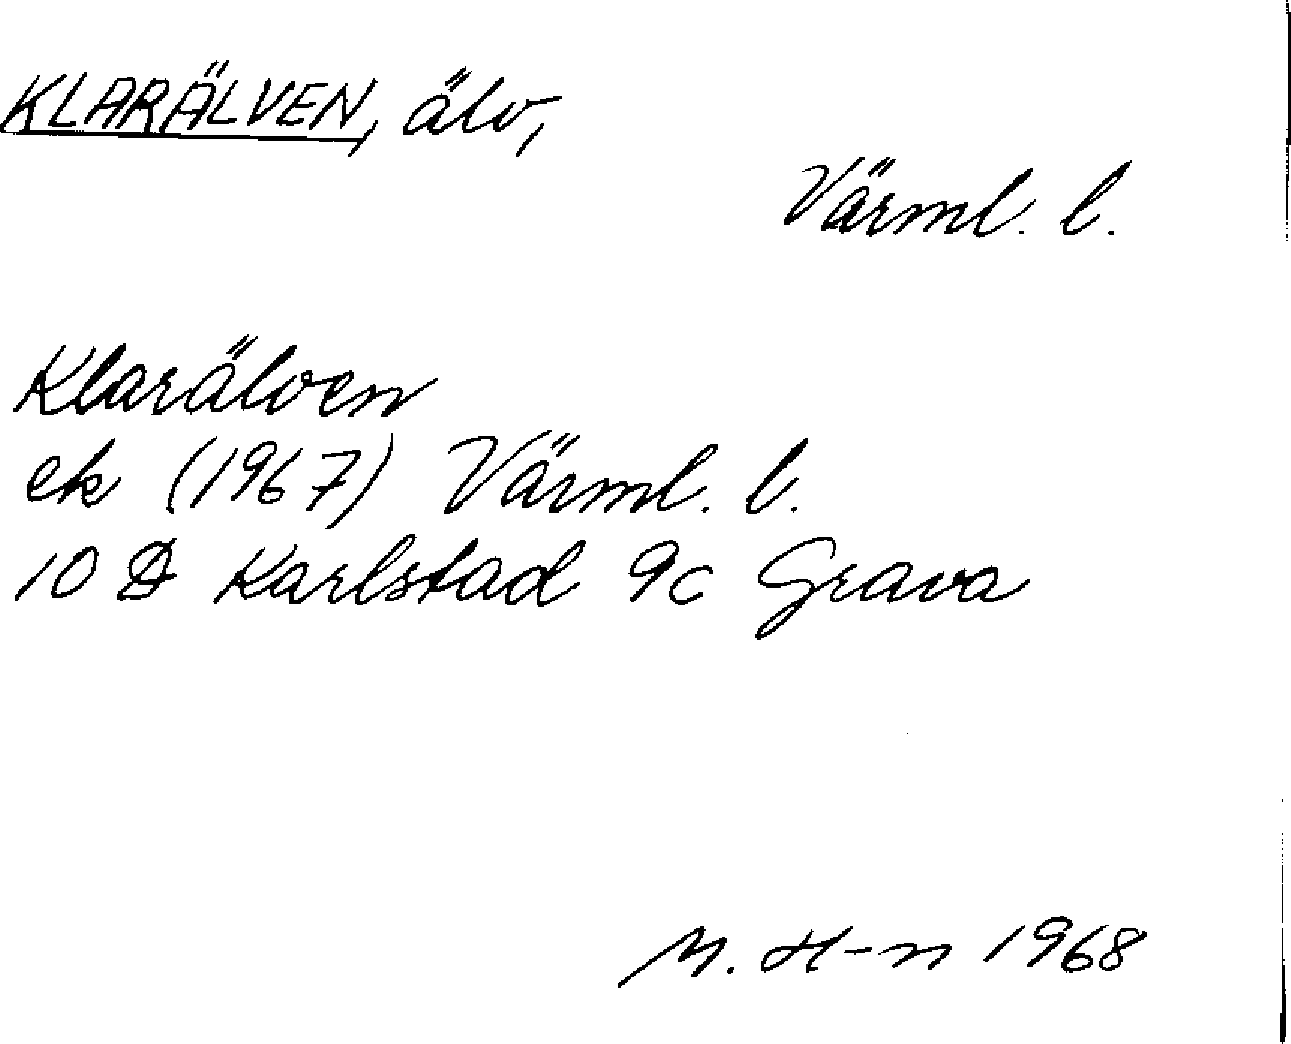 KLARÄLVEN, älv,
Värml. l.
Klarälven
ek (1967) Värml. l.
10 D Karlstad 9c Grava
M. H-n 1968